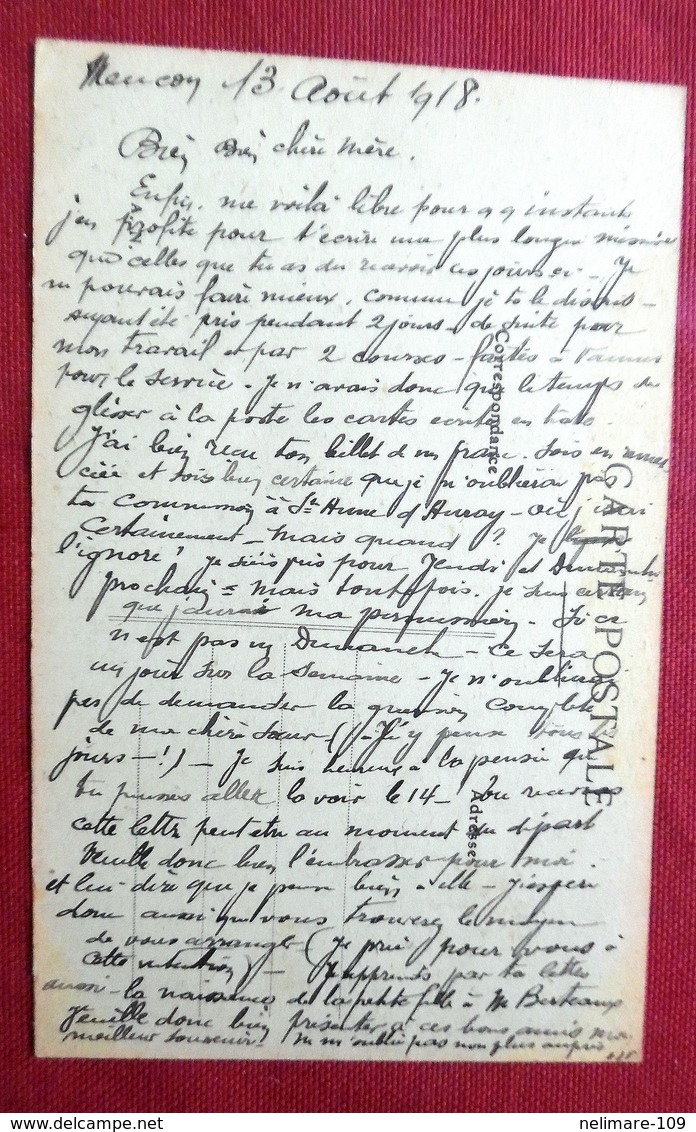 13 Août 1918.
Bien Bien chère Mère.
Enfin, me voilà libre pour qq instants
j'en profite pour t'écrire une plus longue missive
que celles que tu as du recevoir ces jours ci - Je
ne pouvais faire mieux, comme je te le disais -
ayant été pris pendant 2 jours - de suite pour
mon travail et par 2 courses - faites à Vannes
pour le service. Je n'avais donc que le temps de
glisser à la poste les cartes écrites en
J'ai bien reçu ton billet d'un franc. Sois en remer-
ciée et sois bien certaine que je n'oublierai pas
ta commission à Ste Anne d'Auray - où j'irai
certainement - mais quand ? Je
l'ignore ! Je suis pris pour Jeudi et Dimanche
prochain = mais toutefois, je suis certain
que j'aurai ma permission - Si ce
n'est pas un Dimanche - ce sera
un jour sur la semaine - Je n'oublierai
pas de demander la guérison complète
de ma chère sœur (- J'y pense tous les
jours - !) - Je suis heureux à la pensée que
tu puisses aller la voir le 14 - Tu recevras
cette lettre peut etre au moment du départ
Veuille donc bien l'embrasser pour moi.
et lui dire que je pense bien à elle - J'espère
donc aussi que vous trouverez le moyen
de vous arranger (Je prie pour vous à
cette intention) - J'apprends par ta lettre
aussi - la naissance de la petite fille à M Berteaux
Veuille donc bien présenter à ces bons amis mon
meilleur souvenir. Ne m'oublie pas non plus auprès
CARTE POSTALE
Correspondance
Adresse
delcampe.net
nelimare-109